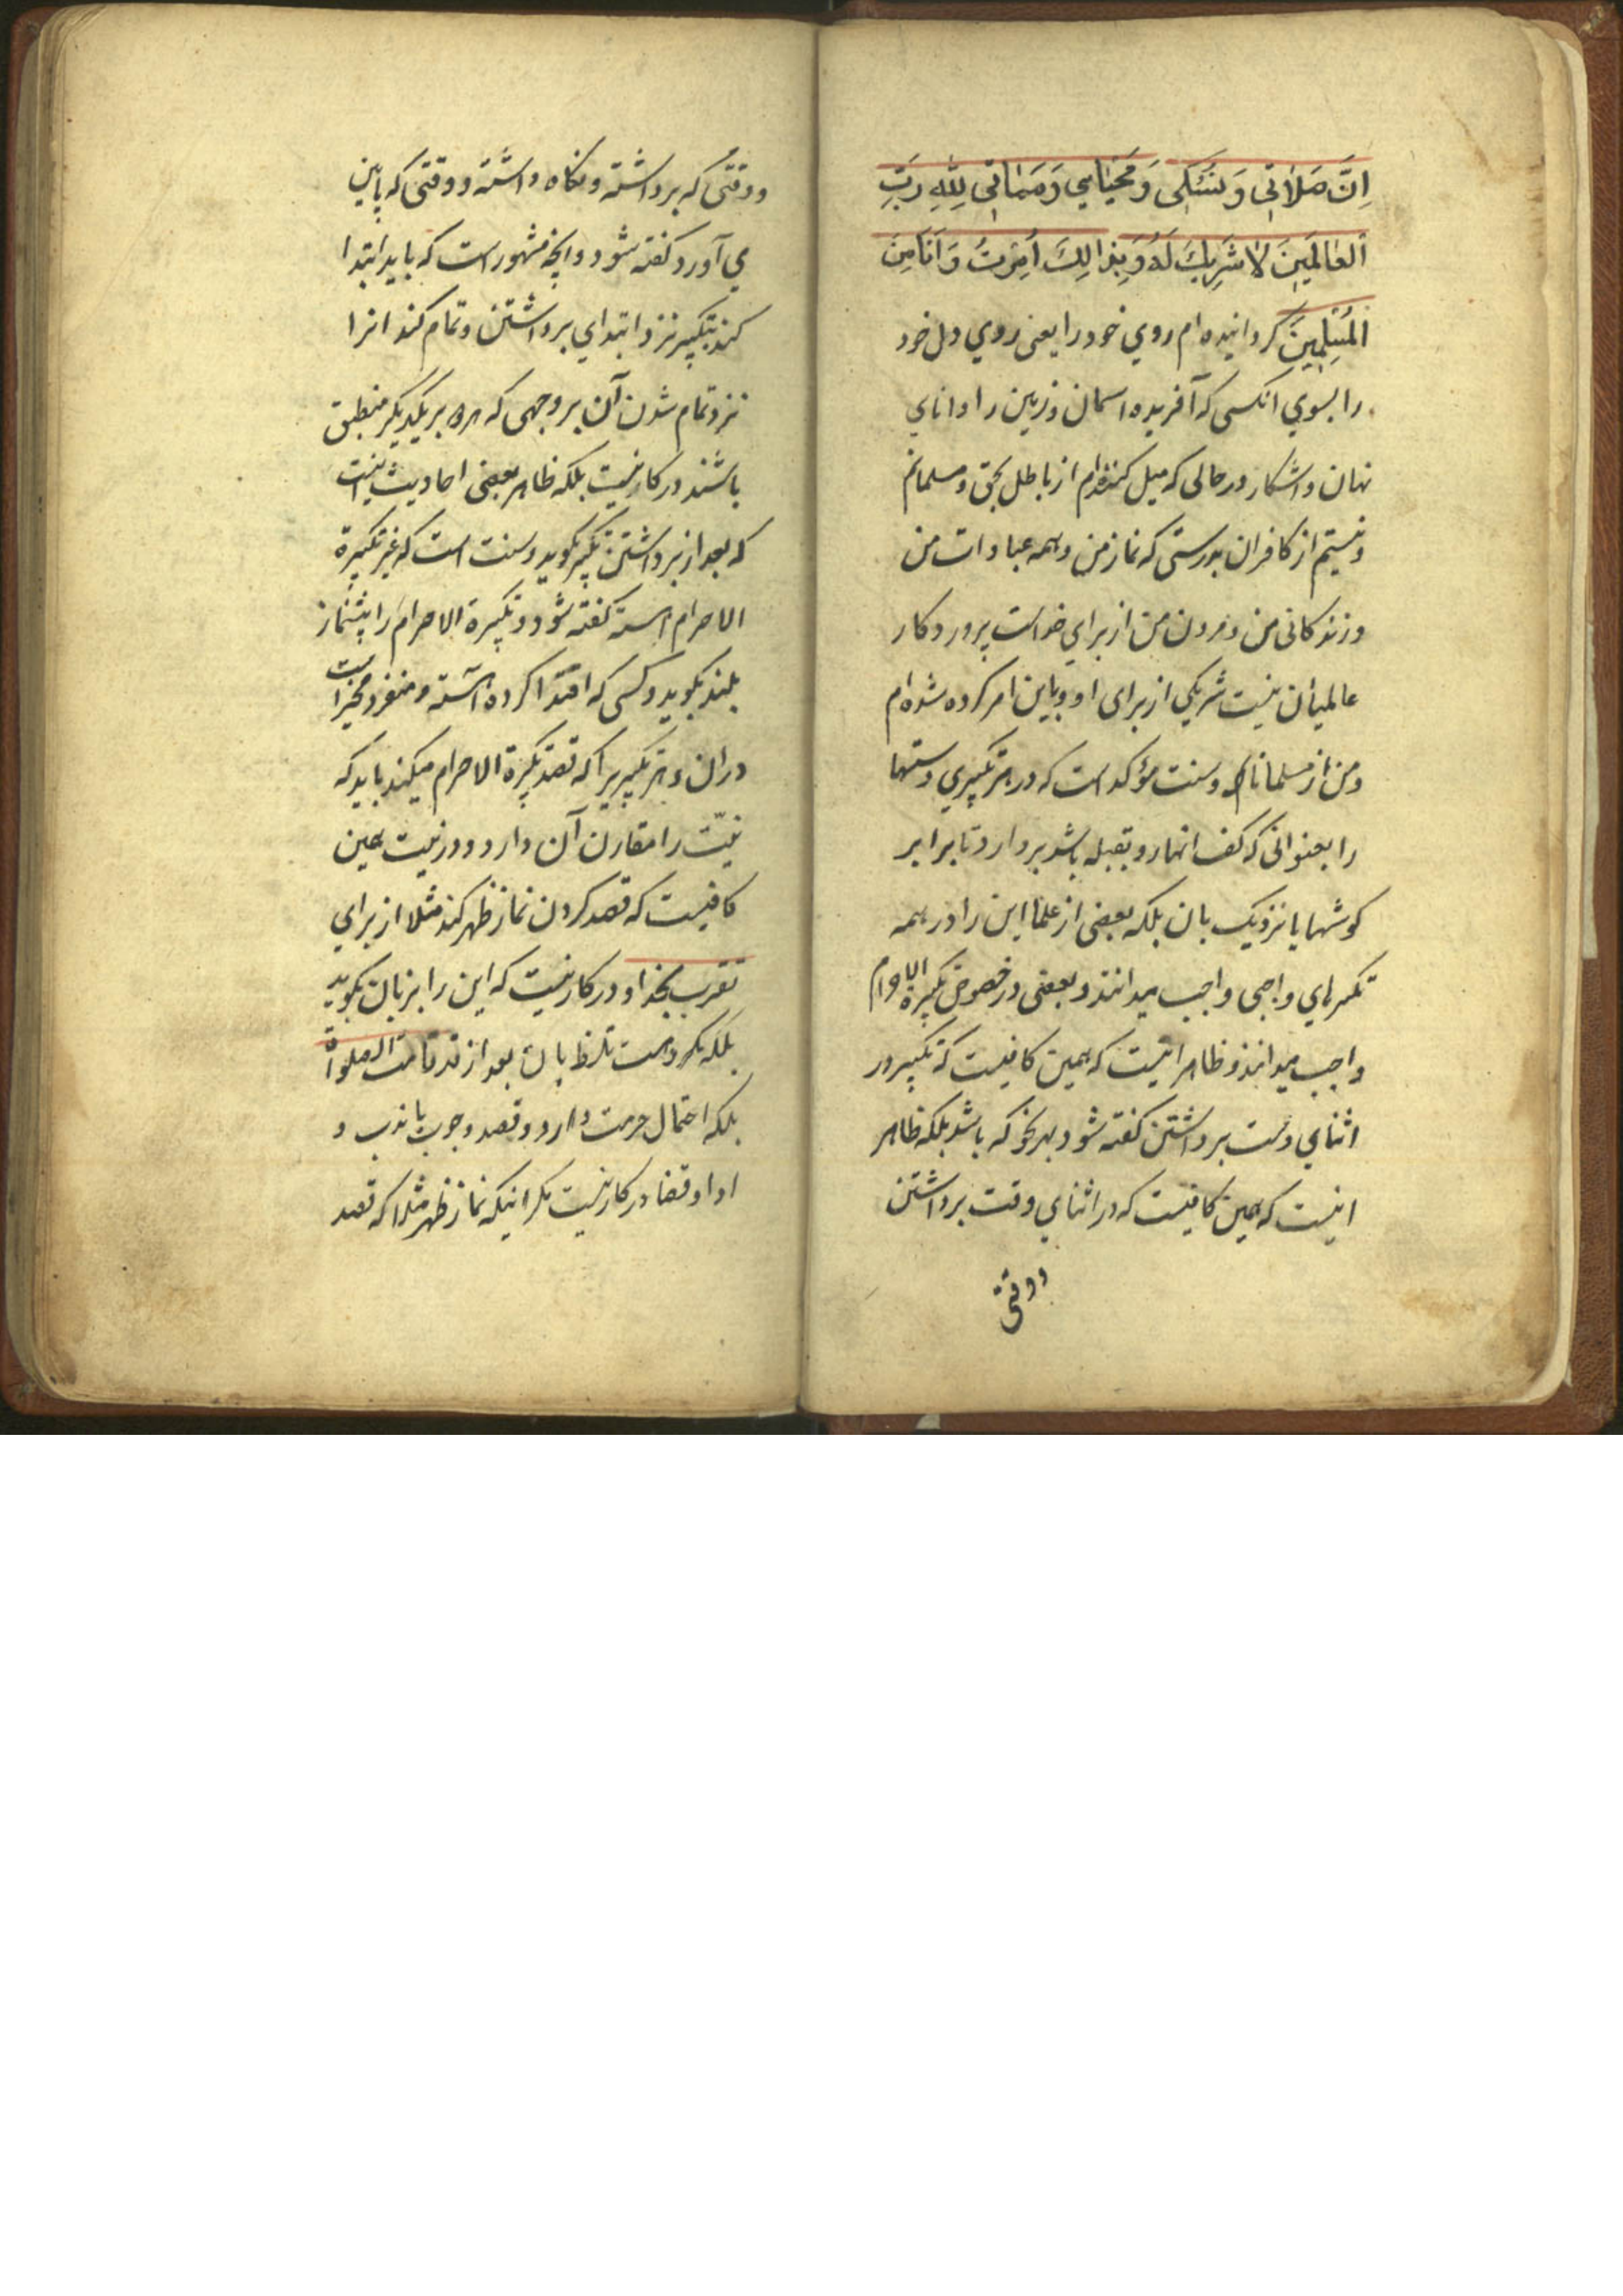 اِنَّ صَلاٰتی وَ نُسُکی وَ مَحْیٰایَ وَ مَمٰاتی لِلّٰهِ رَبِّ
الْعٰالَمینَ لاٰ شَرِیكَ لَهُ وَ بِذٰالِكَ اُمِرْتُ وَ اَنَا مِنَ
الْمُسْلِمینَ کردانیده ام روي خود را یعنی روي دل خود
را بسوي انکسی که آفریده اسمان و زمین را و انای
نهان و اشکار در حالی که میل کننده‌ام از باطل بحق و مسلمانم
و نیستم از کافران بدرستی که نماز من و همه عبادات من
و زندکانی من و مردن من از براي خداست پروردکار
عالمیان نیست شریکي از برای او و باین امر کرده شده ام
و من از مسلمانانم و سنت مؤکد است که در هر تکبیري دستها
را بعنوانی که کف انها رو بقبله باشد بردارد تا برابر
کوشها یا نزدیك بان بلکه بعضی از علما این را در همه
تکبیرهاي واجبی واجب میدانند و بعضی در خصوص تکبیرة الاحرام
واجب میدانند و ظاهر اینست که همین کافیست که تکبیر در
اثناي دست برداشتن کفته شود بهر نحو که باشد بلکه ظاهر
اینست که همین کافیست که در اثناي وقت برداشتن
و وقتی
و وقتی که برداشته و نکاه داشته و وقتی که پایین
می آورد کفته شود و انچه مشهور است که باید ابتدا
کند بتکبیر نزد ابتداي برداشتن و تمام کند انرا
نزد تمام شدن آن بر وجهی که هر دو بر یکدیکر منطبق
باشند در کار نیست بلکه ظاهر بعضی احادیث اینست
که بعد از برداشتن تکبیر بکوید و سنت است که غیر تکبیرة
الاحرام اهسته کفته شود و تکبیرة الاحرام را پیشنماز
بلند بکوید و کسی که اقتدا کرده آهسته و منفرد مخیر است
در ان و هر تکبیریرا که قصد تکبیرة الاحرام میکند باید که
نیّت را مقارن آن دارد و در نیت همین
کافیست که قصد کردن نماز ظهر کند مثلا از براي
تقرب بخدا و در کار نیست که این را بزبان بکوید
بلکه مکروهست تلفظ بان بعد از قد قامت الصلوة
بلکه احتمال حرمت دارد و قصد وجوب یا ندب و
ادا و قضا در کار نیست مکر اینکه نماز ظهر مثلا که قصد